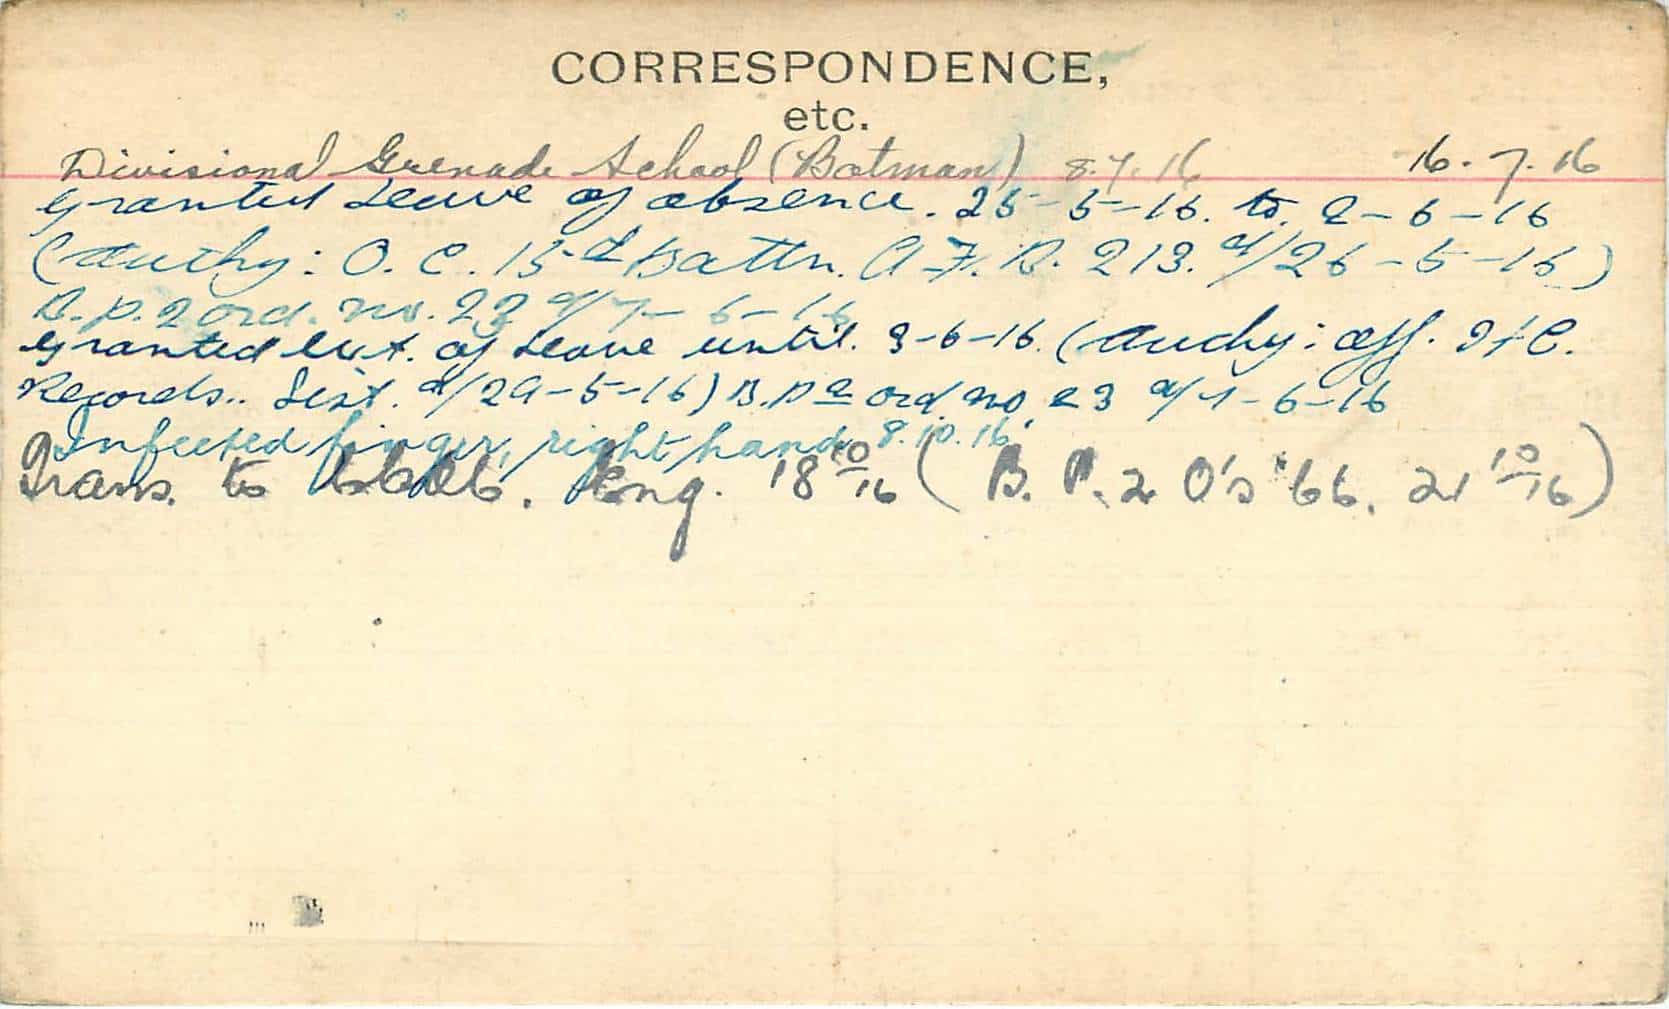 CORRESPONDENCE,
etc.
Divisional Grenade School (Batman) 8.7.16 16.7.16
Granted Leave of absence. 25-5-16. to. 2-6-16
(Authy: O.C. 15-d Battn. A.F.B. 213. d/26-5-16)
B.P.2 ord. no. 23 d/7-6-16
Granted Ext. of Leave until. 3-6-16. (Authy: off. I/C.
Records.. List. d/29-5-16) B.P 2 ord. no. 23 d/7-6-16
Infected finger, right hand 8.10.16.
Trans. to Eng. 18 10/16 (B.P.2 O's 66. 21 10/16)